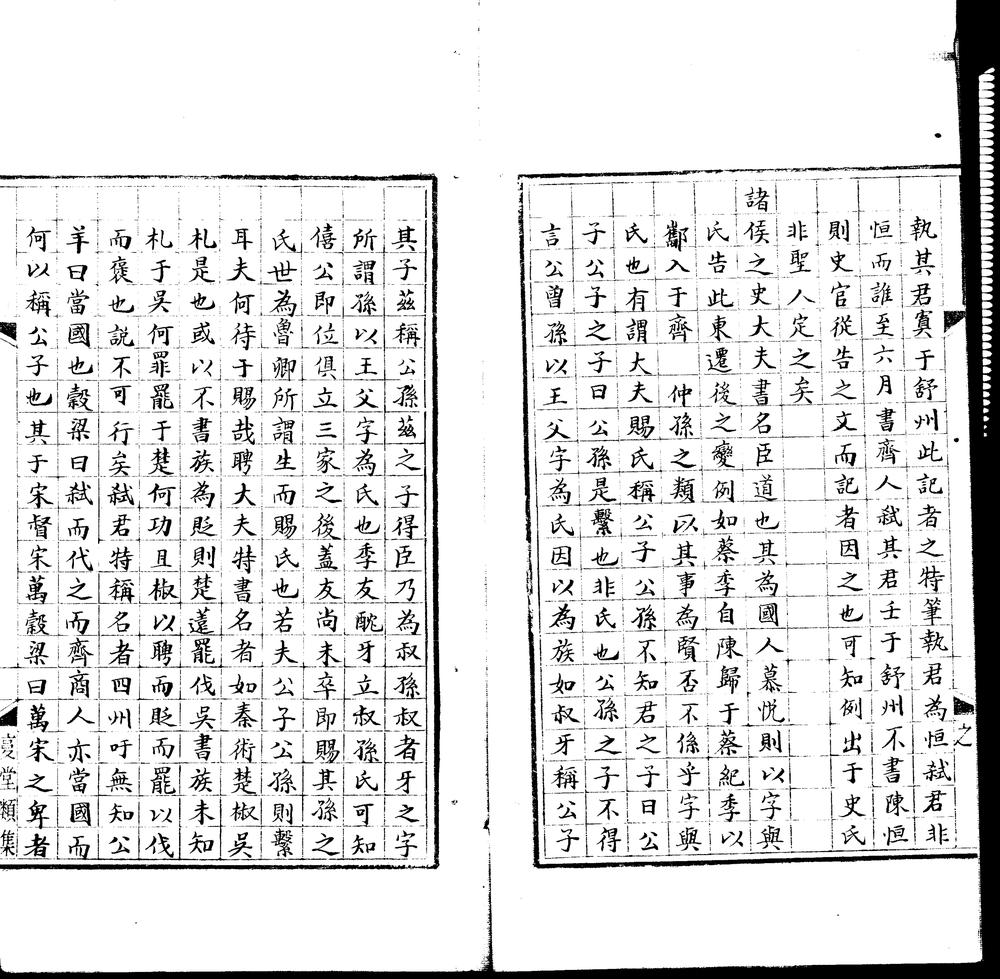 執其君寘于舒州此記者之特筆執君為恒弑君非
恒而誰至六月書齊人弑其君壬于舒州不書陳恒
則史官從告之文而記者因之也可知例出于史氏
非聖人定之矣
諸侯之史大夫書名臣道也其為國人慕悦則以字與
氏告此東遷後之變例如蔡季自陳歸于蔡紀季以
酅入于齊 仲孫之類以其事為賢否不係乎字與
氏也有謂大夫賜氏稱公子公孫不知君之子曰公
子公子之子曰公孫是繫也非氏也公孫之子不得
言公曾孫以王父字為氏因以為族如叔牙稱公子
其子茲稱公孫茲之子得臣乃為叔孫叔者牙之字
所謂孫以王父字為氏也季友酖牙立叔孫氏可知
僖公即位俱立三家之後蓋友尚未卒即賜其孫之
氏世為魯卿所謂生而賜氏也若夫公子公孫則繫
耳夫何待于賜哉聘大夫特書名者如秦術楚椒吳
札是也或以不書族為貶則楚薳罷伐吳書族未知
札于吳何罪罷于楚何功且椒以聘而貶而罷以伐
而褒也説不可行矣弑君特稱名者四州吁無知公
羊曰當國也穀梁曰弑而代之而齊商人亦當國而
何以稱公子也其于宋督宋萬穀梁曰萬宋之卑者
之
堂類集